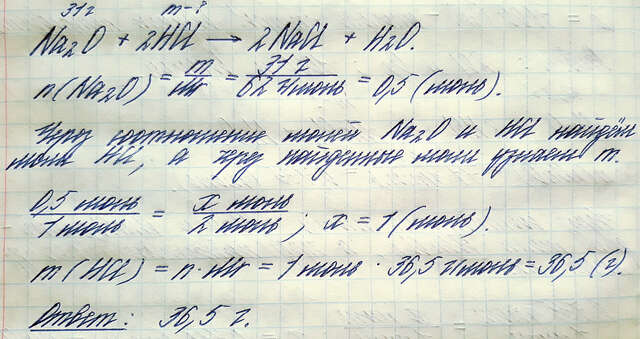 31 г m-?
Na₂O + 2HCl → 2NaCl + H₂O.
n(Na₂O) = m/Mr = 31 г/62 г/моль = 0,5 (моль).
Через соотношение молей Na₂O и HCl найдём
моли HCl, а через найденные моли узнаем m.
0,5 моль/1 моль = x моль/2 моль; x = 1 (моль).
m(HCl) = n·Mr = 1 моль · 36,5 г/моль = 36,5 (г).
Ответ: 36,5 г.